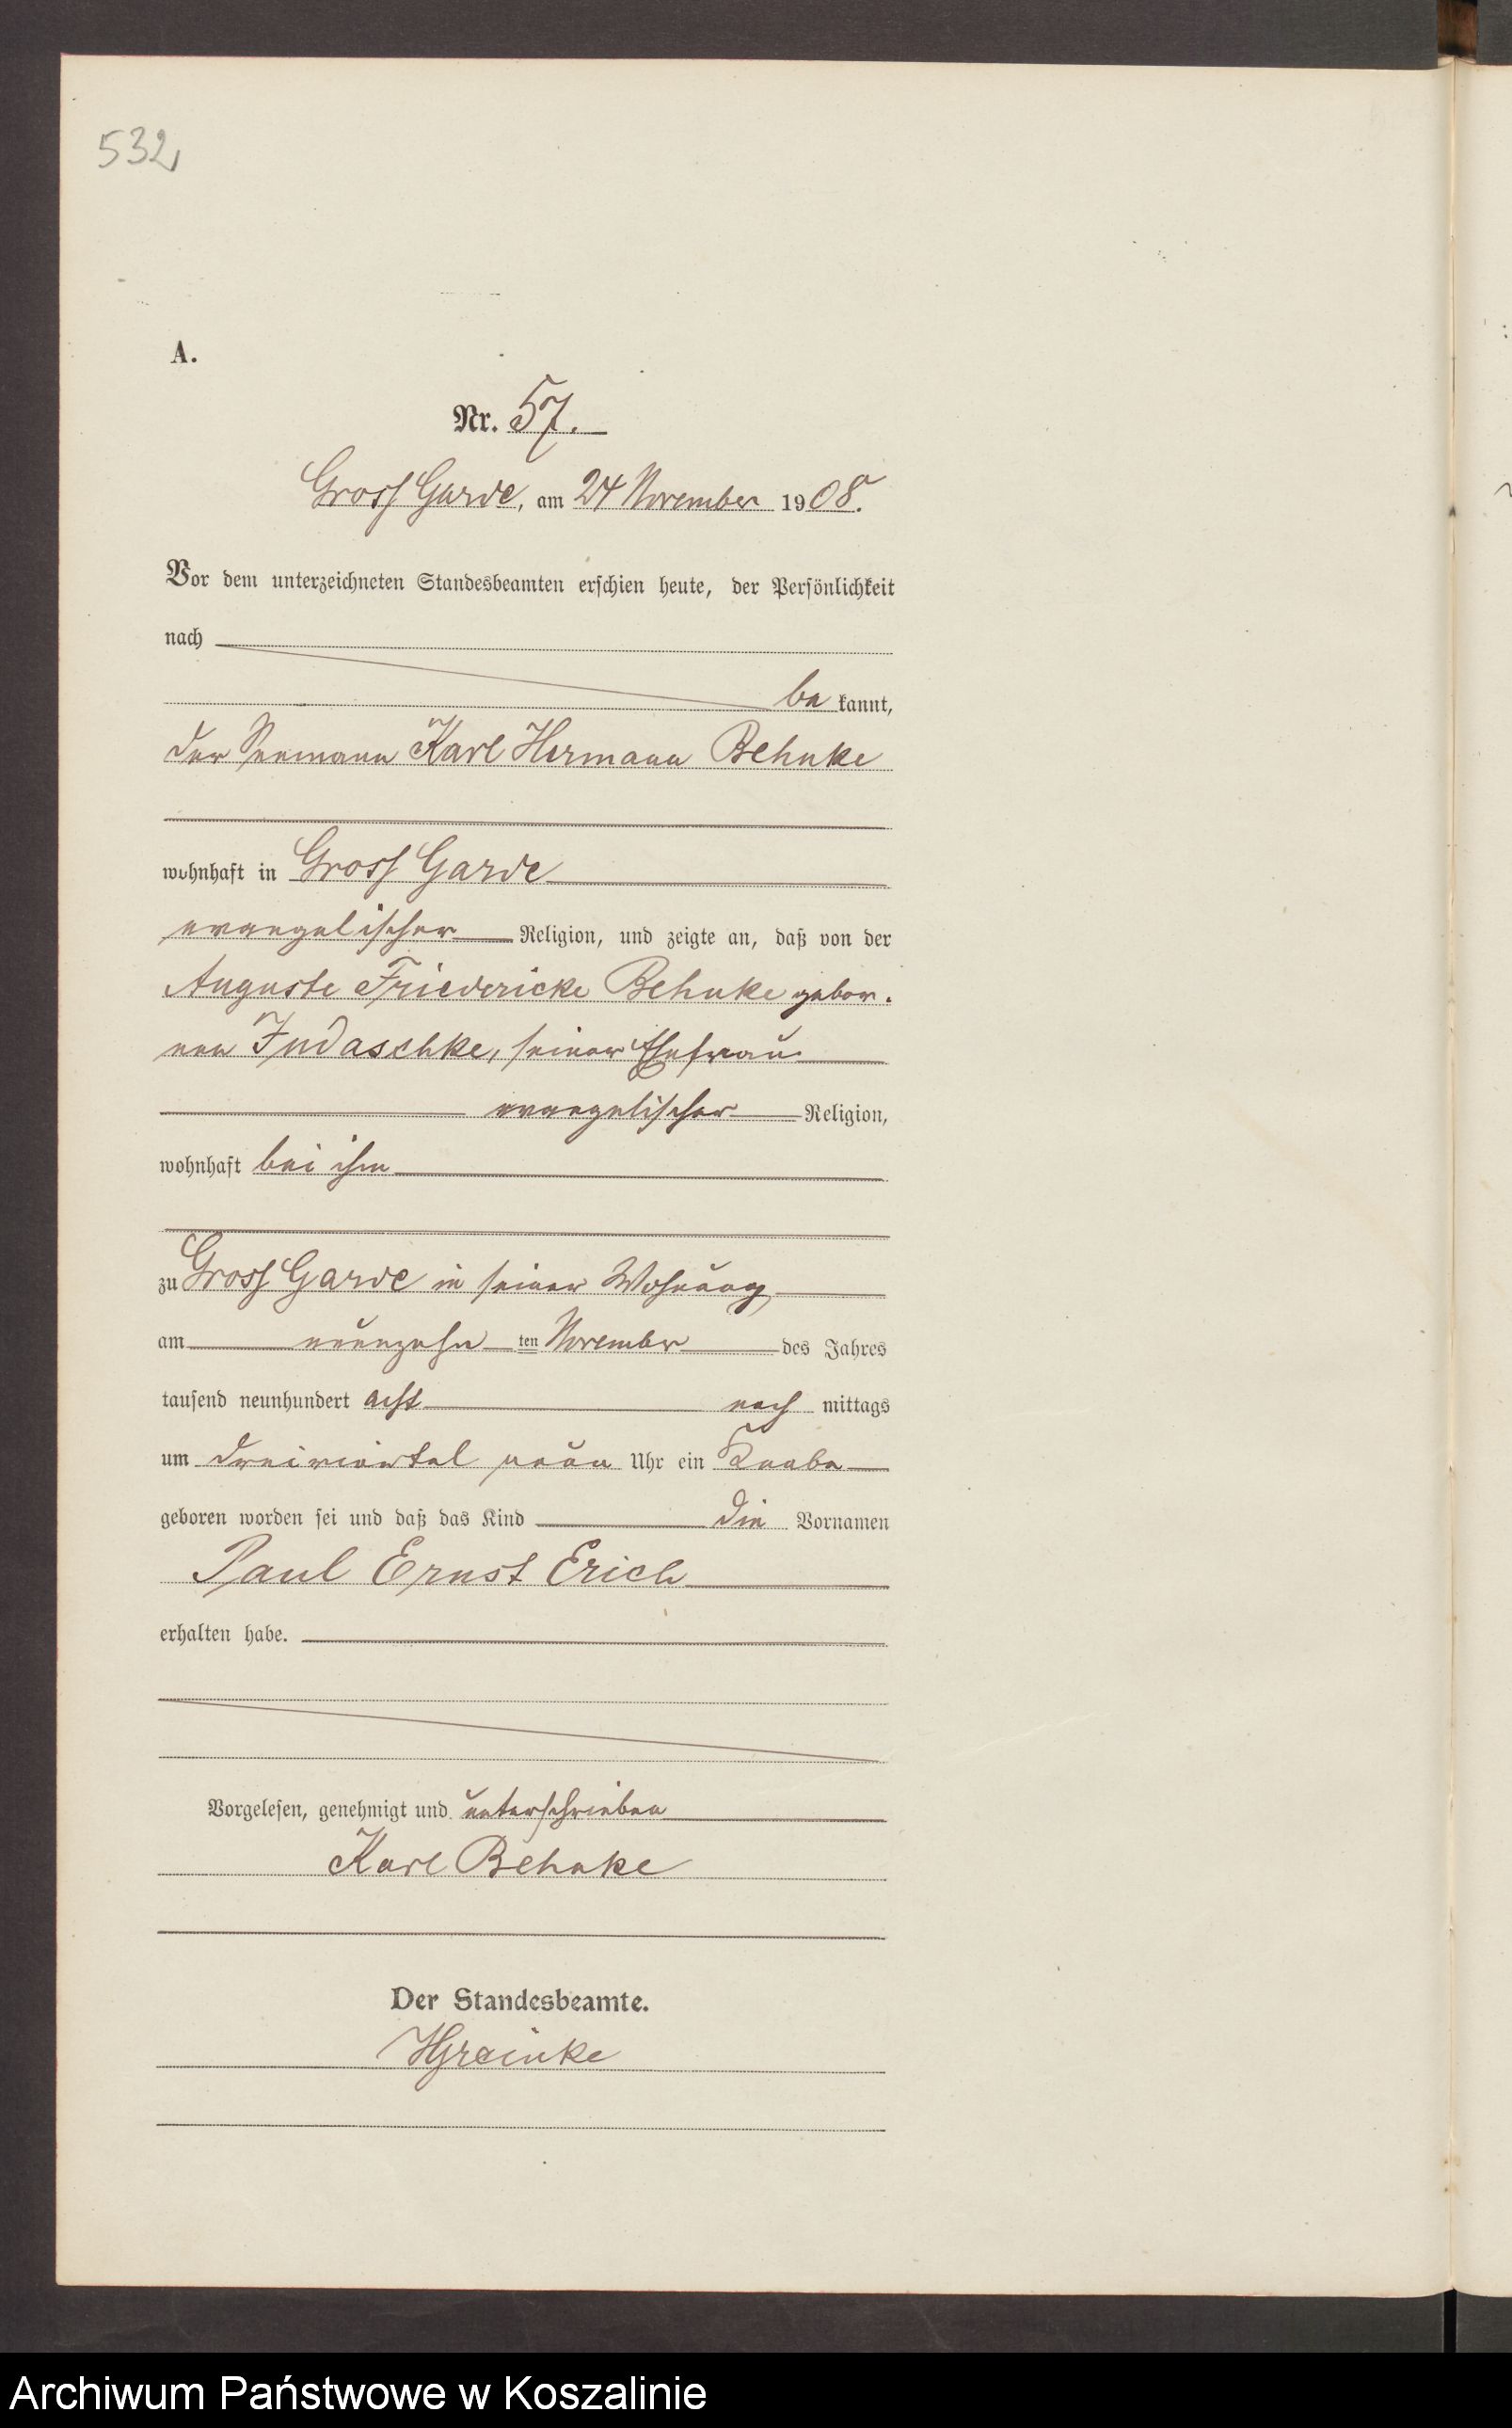 532
A.
Nr. 57.
Gross Garde, am 24 November 1908.
Vor dem unterzeichneten Standesbeamten erschien heute, der Persönlichkeit
nach
be kannt,
der Seemann Karl Hermann Behnke
wohnhaft in Gross Garde
evangelischer Religion, und zeigte an, daß von der
Auguste Friedericke Behnke gebor.
nen Judaschke, seiner Ehefrau
evangelischer Religion,
wohnhaft bei ihm
zu Gross Garde in seiner Wohnung
am neunzehn ten November des Jahres
tausend neunhundert acht nach mittags
um dreiviertel neun Uhr ein Knabe
geboren worden sei und daß das Kind die Vornamen
Paul Ernst Erich
erhalten habe.
Vorgelesen, genehmigt und unterschrieben
Karl Behnke
Der Standesbeamte.
Archiwum Państwowe w Koszalinie